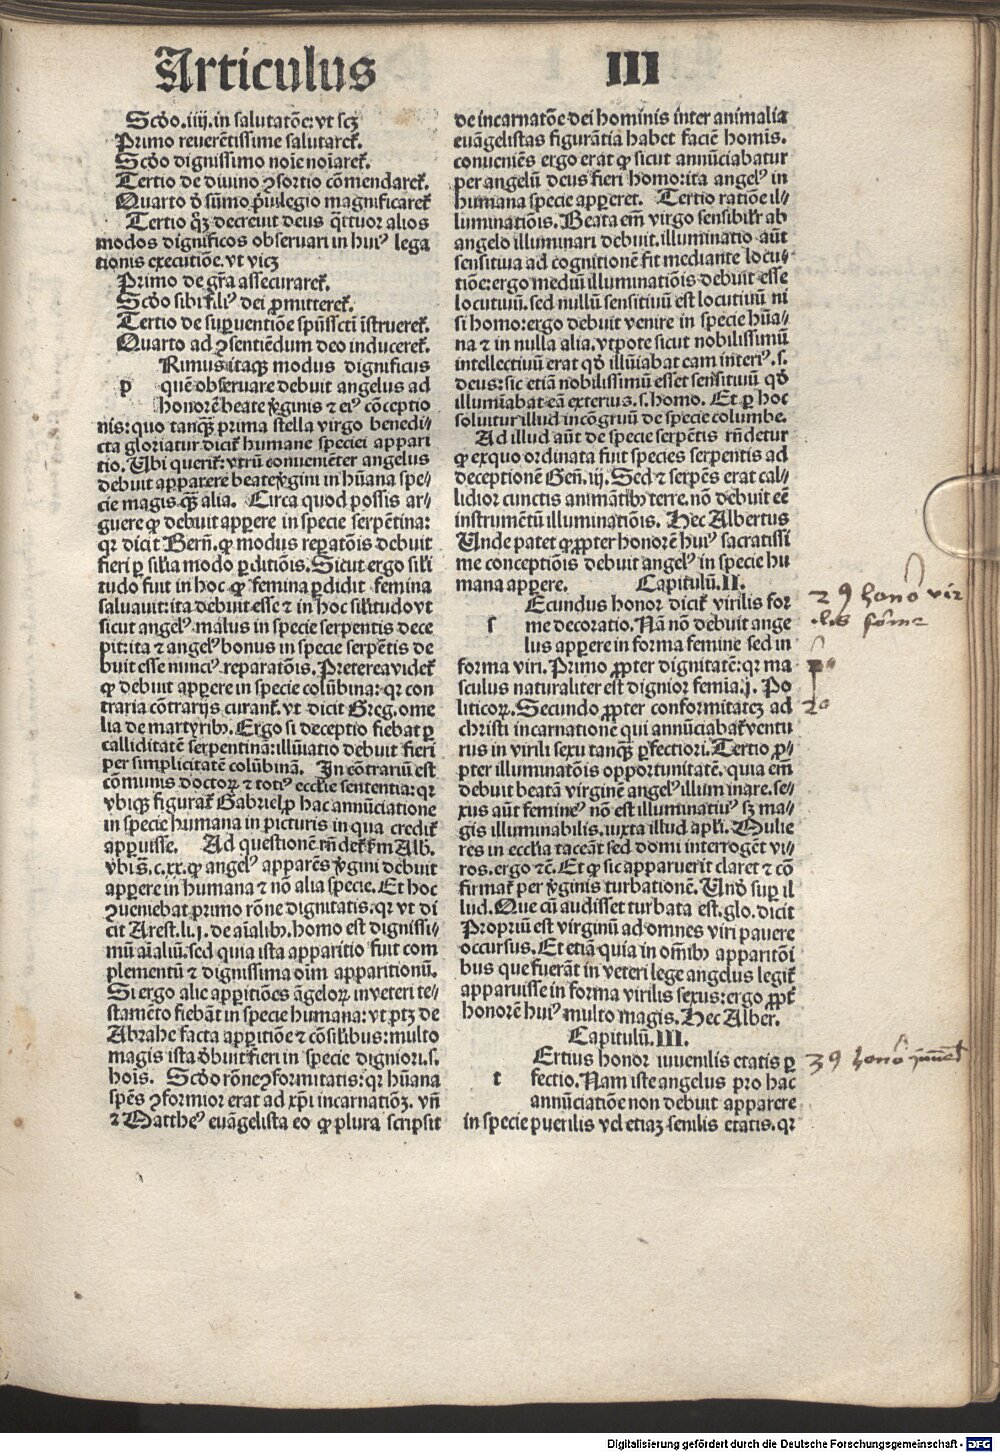 Articulus III
Scďo .iiij. in salutatōe: vt scꝫ
Primo reuerētissime salutareƭ.
Scďo dignissimo noīe noīareƭ.
Tertio de diuino ꝯsortio cōmendareƭ.
Quarto ď sūmo p̄uilegio magnificareƭ
Tertio qꝫ decreuit deus q̄ttuor alios
modos dignificos obseruari in huiꝰ lega
tionis executiōe. vt vicꝫ
Primo de gr̄a assecurareƭ.
Scďo sibi filiꝰ dei ꝓmittereƭ.
Tertio de suꝑuentiōe spūssctī īstruereƭ.
Quarto ad ꝯsentiēdum deo inducereƭ.
Rimus itaqꝫ modus dignificus
p quē obseruare debuit angelus ad
honorē beate v̄ginis ⁊ eiꝰ cōceptio
nis: quo tanqꝫ prima stella virgo benedi
cta gloriatur dicit̄ humane speciei appari
tio. Ubi querit̄: vtrū conueniēter angelus
debuit apparere beate v̄gini in hūana spe⸗
cie magis qꝫ alia. Circa quod possis ar⸗
guere ꝙ debuit apꝑere in specie serpētina:
qꝛ dicit Bern̄. ꝙ modus reꝑatōis debuit
fieri ꝑ sil̄ia modo ꝑditiōis. Sicut ergo sil̄i
tudo fuit in hoc ꝙ femina ꝑdidit femina
saluauit: ita debuit esse ⁊ in hoc sil̄itudo vt
sicut angelꝰ malus in specie serpentis dece
pit: ita ⁊ angelꝰ bonus in specie serpētis de
buit esse nunciꝰ reparatōis. Preterea videƭ
ꝙ debuit apꝑere in specie colūbina: qꝛ con
traria cōtrarijs curant̄. vt dicit Greg. ome
lia de martyribꝫ. Ergo si deceptio fiebat ꝑ
calliditatē serpentinā: illūiatio debuit fieri
per simplicitatē colūbinā. In cōtrariū est
cōmunis doctoꝝ ⁊ totiꝰ ecclīe sententia: qꝛ
vbiqꝫ figurat̄ Gabriel ꝓ hac annūciatione
in specie humana in picturis in qua credit̄
apꝑuisse. Ad questionē rn̄deƭ ẜm Alb.
vbi s̄. c. xx. ꝙ angelꝰ apparēs v̄gini debuit
apꝑere in humana ⁊ nō alia specie. Et hoc
ꝯueniebat primo rōne dignitatis. qꝛ vt di
cit Arest. li. j. de aīalibꝫ. homo est dignissi⸗
mū aīaliū. sed quia ista apparitio fuit com
plementū ⁊ dignissima oīm apparitionū.
Si ergo alie apꝑitiōes āgeloꝝ in veteri te⸗
stamēto fiebāt in specie humana: vt ptꝫ de
Abrahe facta apꝑitiōe ⁊ cōsil̄ibus: multo
magis ista ďbuit fieri in specie digniori. s.
hoīs. Scďo rōne ꝯformitatis: qꝛ hūana
spēs ꝯformior erat ad xp̄i incarnatiōꝫ. vn̄
⁊ Mattheꝰ euāgelista eo ꝙ plura scripsit
de incarnatōe dei hominis inter animalia
euāgelistas figurātia habet faciē homīs.
conueniēs ergo erat ꝙ sicut annūciabatur
per angelū deus fieri homo: ita angelꝰ in
humana specie apꝑeret. Tertio ratiōe il⸗
luminatiōis. Beata em̄ virgo sensibilr̄ ab
angelo illuminari debuit. illuminatio aūt
sensitiua ad cognitionē fit mediante locu⸗
tiōe: ergo mediū illuminatiōis debuit esse
locutiuū. sed nullū sensitiuū est locutiuū ni
si homo: ergo debuit venire in specie hūa⸗
na ⁊ in nulla alia. vtpote sicut nobilissimū
intellectiuū erat qď illūiabat eam interiꝰ. s.
deus: sic etiā nobilissimū esset sensitiuū qď
illumīabat eā exterius. s. homo. Et ꝑ hoc
soluitur illud incōgruū de specie columbe.
Ad illud aūt de specie serpētis rn̄detur
ꝙ ex quo ordinata fuit species serpentis ad
deceptionē Gen̄. iij. Sed ⁊ serpēs erat cal⸗
lidior cunctis animātibꝫ terre. nō debuit eē
instrumētū illuminatiōis. Hec Albertus
Unde patet ꝙ ꝓpter honorē huiꝰ sacratissi
me conceptiōis debuit angelꝰ in specie hu
mana apꝑere. Capitulū. II.
Ecundus honor dicit̄ virilis for
ſ me decoratio. Nā nō debuit ange
lus apꝑere in forma femine sed in
forma viri. Primo ꝓpter dignitatē: qꝛ ma
sculus naturaliter est dignior femīa. j. Po
liticoꝝ. Secundo ꝓpter conformitateꝫ ad
christi incarnationē qui annūciabat̄ ventu
rus in virili sexu tanqꝫ ꝑfectiori. Tertio ꝓ⸗
pter illuminatōis opportunitatē. quia em̄
debuit beatā virginē angelꝰ illuminare. se⸗
xus aūt femineꝰ nō est illuminatiuꝰ sꝫ ma⸗
gis illuminabilis. iuxta illud apl̄i. Mulie
res in ecclīa taceāt sed domi interrogēt vi⸗
ros. ergo ⁊c̄. Et ꝙ sic apparuerit claret ⁊ cō
firmat̄ per v̄ginis turbationē. Unď suꝑ il
lud. Que cū audisset turbata est. glo. dicit
Propriū est virginū ad omnes viri pauere
occursus. Et etiā quia in om̄ibꝫ apparitōi
bus que fuerāt in veteri lege angelus legit̄
apparuisse in forma virilis sexus: ergo ꝓpƭ
honorē huiꝰ multo magis. Hec Alber.
Capitulū. III.
Ertius honor iuuenilis etatis ꝑ
t fectio. Nam iste angelus pro hac
annūciatiōe non debuit apparere
in specie puerilis vel etiaꝫ senilis etatis. qꝛ
2ꝯ honō vir
ilis forme
pº
2º
3ꝯ honō
Digitalisierung gefördert durch die Deutsche Forschungsgemeinschaft - DFG